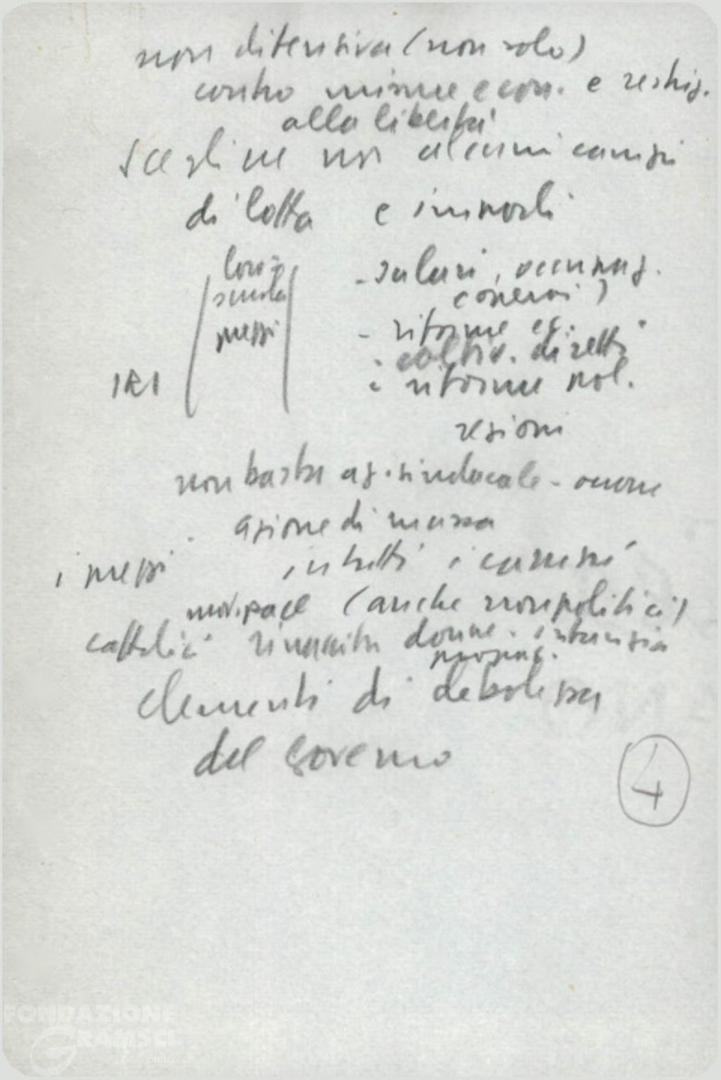 non difensiva (non solo)
contro misure econ. e restriz.
alla libertà
sceglierne noi alcuni campi
di lotta e imporli
loro
scuola
mezzi
IRI
- salari, occupaz.
- riforme ec.
- coltiv. diretti
- riforme pol.
regioni
non basta az. sindacale - occorre
azione di massa
i mezzi in tutti i campi
mov. pace (anche non politici)
cattolici rinascita donne
propag.
elementi di debolezza
del governo
4
FONDAZIONE
GRAMSCI